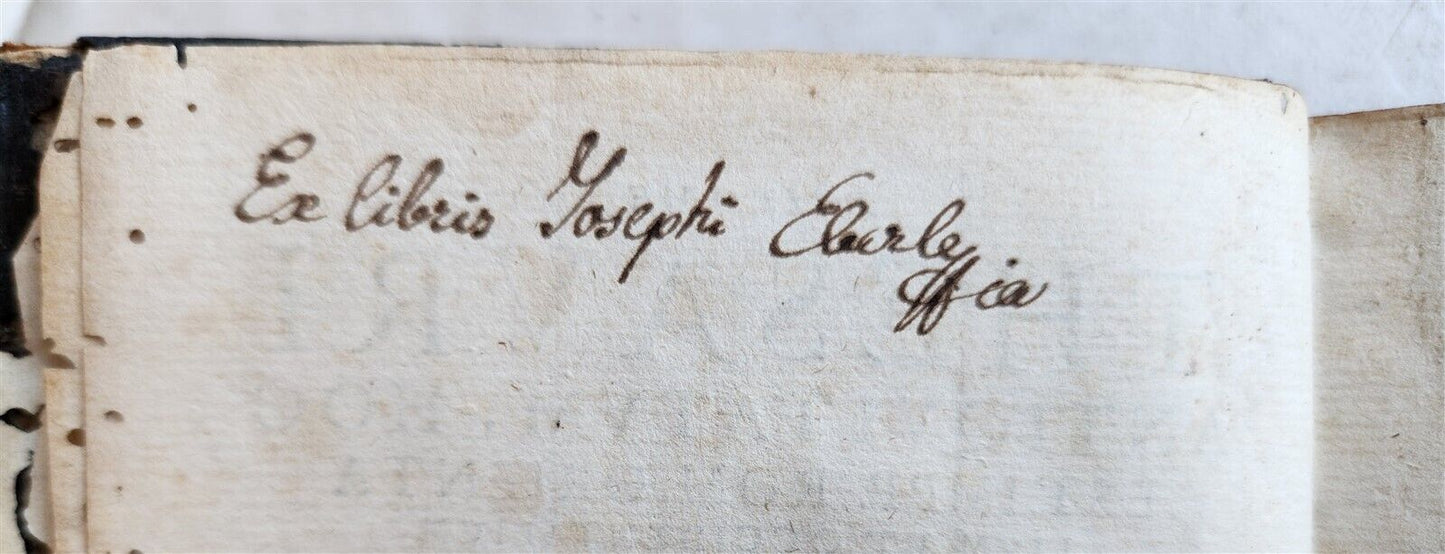 Ex libris Josephi Eberle